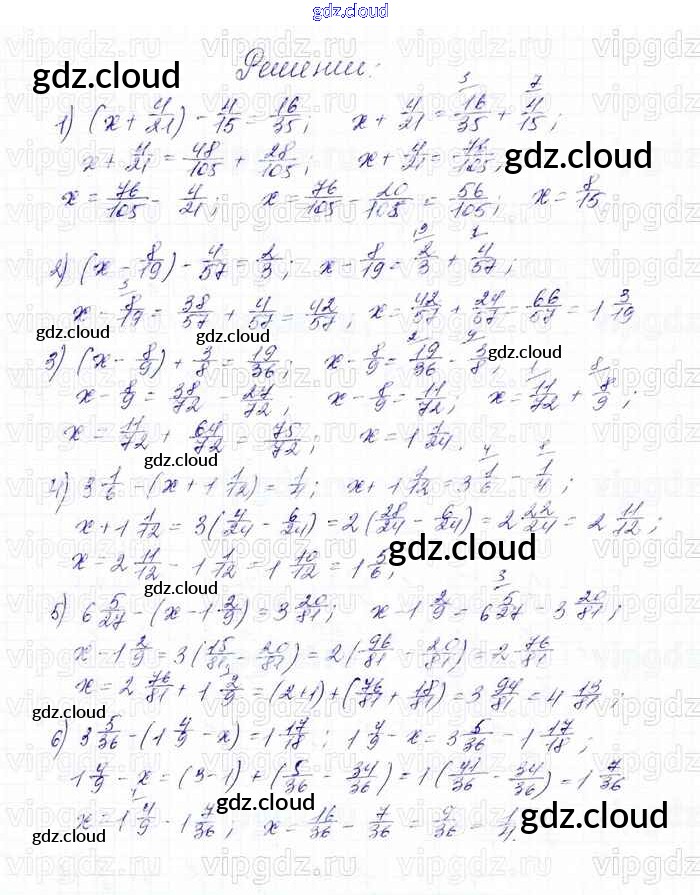 gdz.cloud
Решение:
1) (x + 4/21) - 4/15 = 16/35; x + 4/21 = 16/35 + 4/15;
x + 4/21 = 48/105 + 28/105; x + 4/21 = 76/105;
x = 76/105 - 4/21; x = 76/105 - 20/105 = 56/105; x = 8/15.
2) (x - 8/19) - 4/57 = 2/3; x - 8/19 = 2/3 + 4/57;
x - 8/19 = 38/57 + 4/57 = 42/57; x = 42/57 + 24/57 = 66/57 = 1 3/19
3) (x - 8/9) + 3/8 = 19/36; x - 8/9 = 19/36 - 3/8;
x - 8/9 = 38/72 - 27/72; x - 8/9 = 11/72; x = 11/72 + 8/9;
x = 11/72 + 64/72 = 75/72; x = 1 1/24.
4) 3 1/6 - (x + 1 1/12) = 1/4; x + 1 1/12 = 3 1/6 - 1/4;
x + 1 1/12 = 3(4/24 - 6/24) = 2(28/24 - 6/24) = 2 22/24 = 2 11/12;
x = 2 11/12 - 1 1/12 = 1 10/12 = 1 5/6;
5) 6 5/27 - (x - 1 2/9) = 3 20/81; x - 1 2/9 = 6 5/27 - 3 20/81;
x - 1 2/9 = 3(15/81 - 20/81) = 2(96/81 - 20/81) = 2 76/81
x = 2 76/81 + 1 2/9 = (2+1) + (76/81 + 18/81) = 3 94/81 = 4 13/81;
6) 3 5/36 - (1 4/9 - x) = 1 17/18; 1 4/9 - x = 3 5/36 - 1 17/18;
1 4/9 - x = (3-1) + (5/36 - 34/36) = 1(41/36 - 34/36) = 1 7/36
x = 1 4/9 - 1 7/36; x = 16/36 - 7/36 = 9/36 = 1/4.